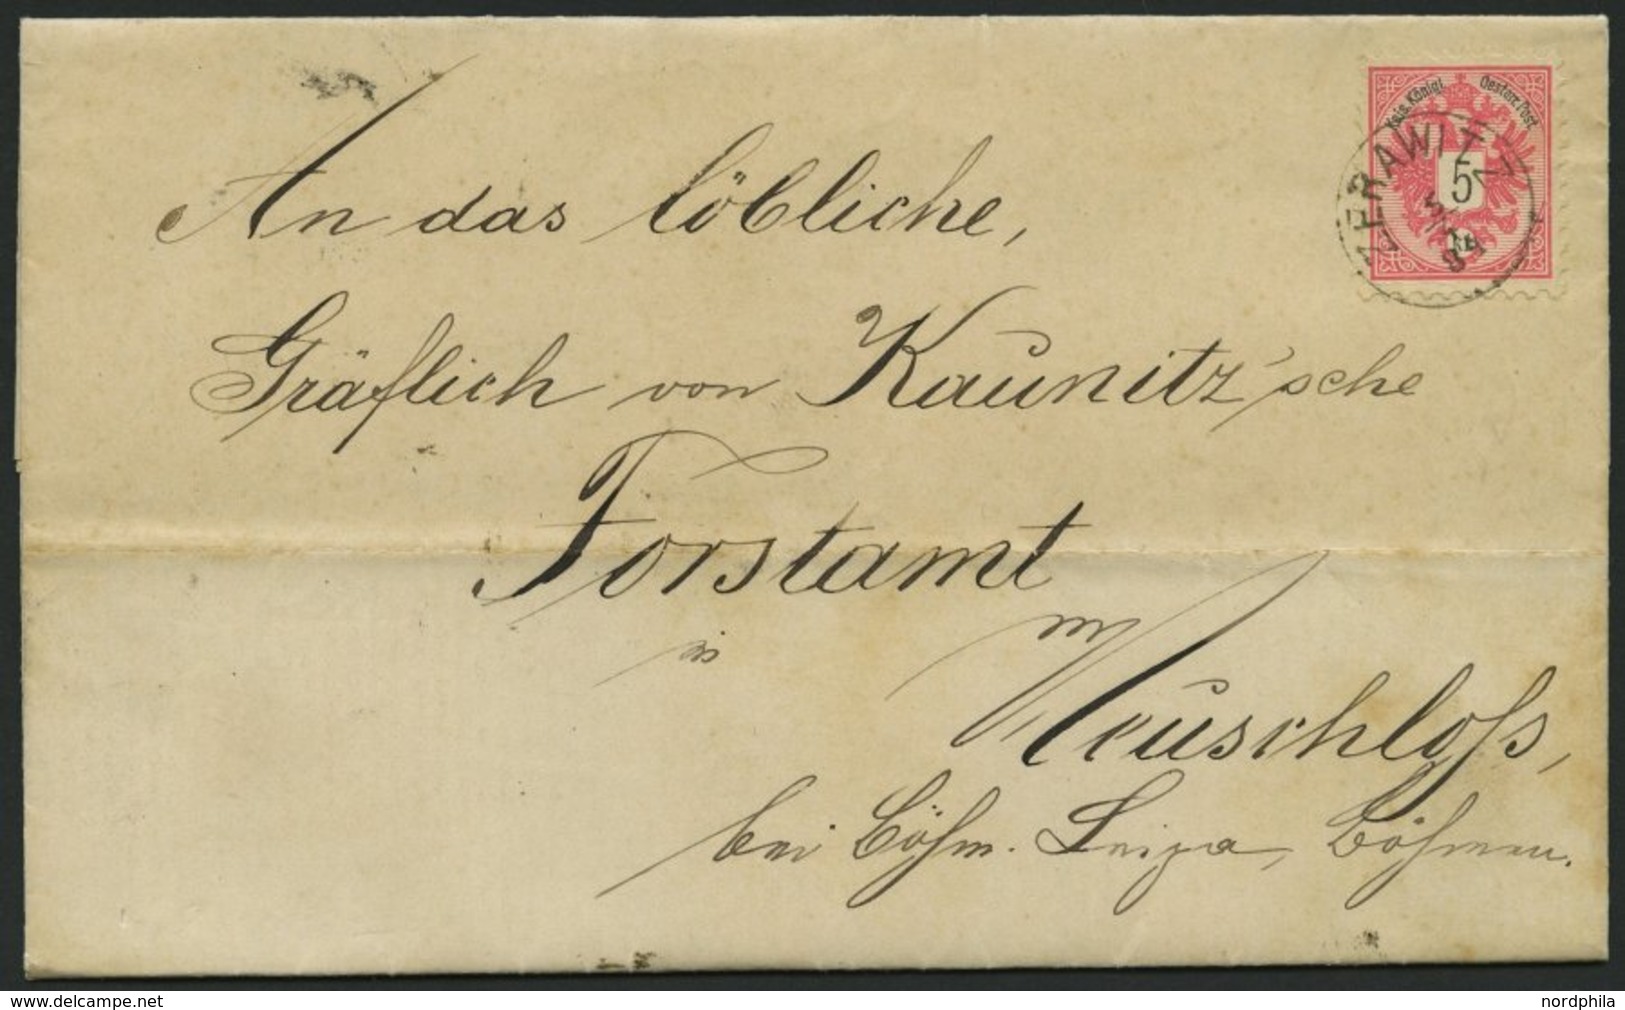 Kais. Königl. Oesterr. Post.
ZERAWITZ
5
84
An das löbliche,
Gräflich von Kaunitz'sche
Forstamt
in
Neuschloß,
bei Böhm. Leipa, Böhmen.
www.delcampe.net
nordphila